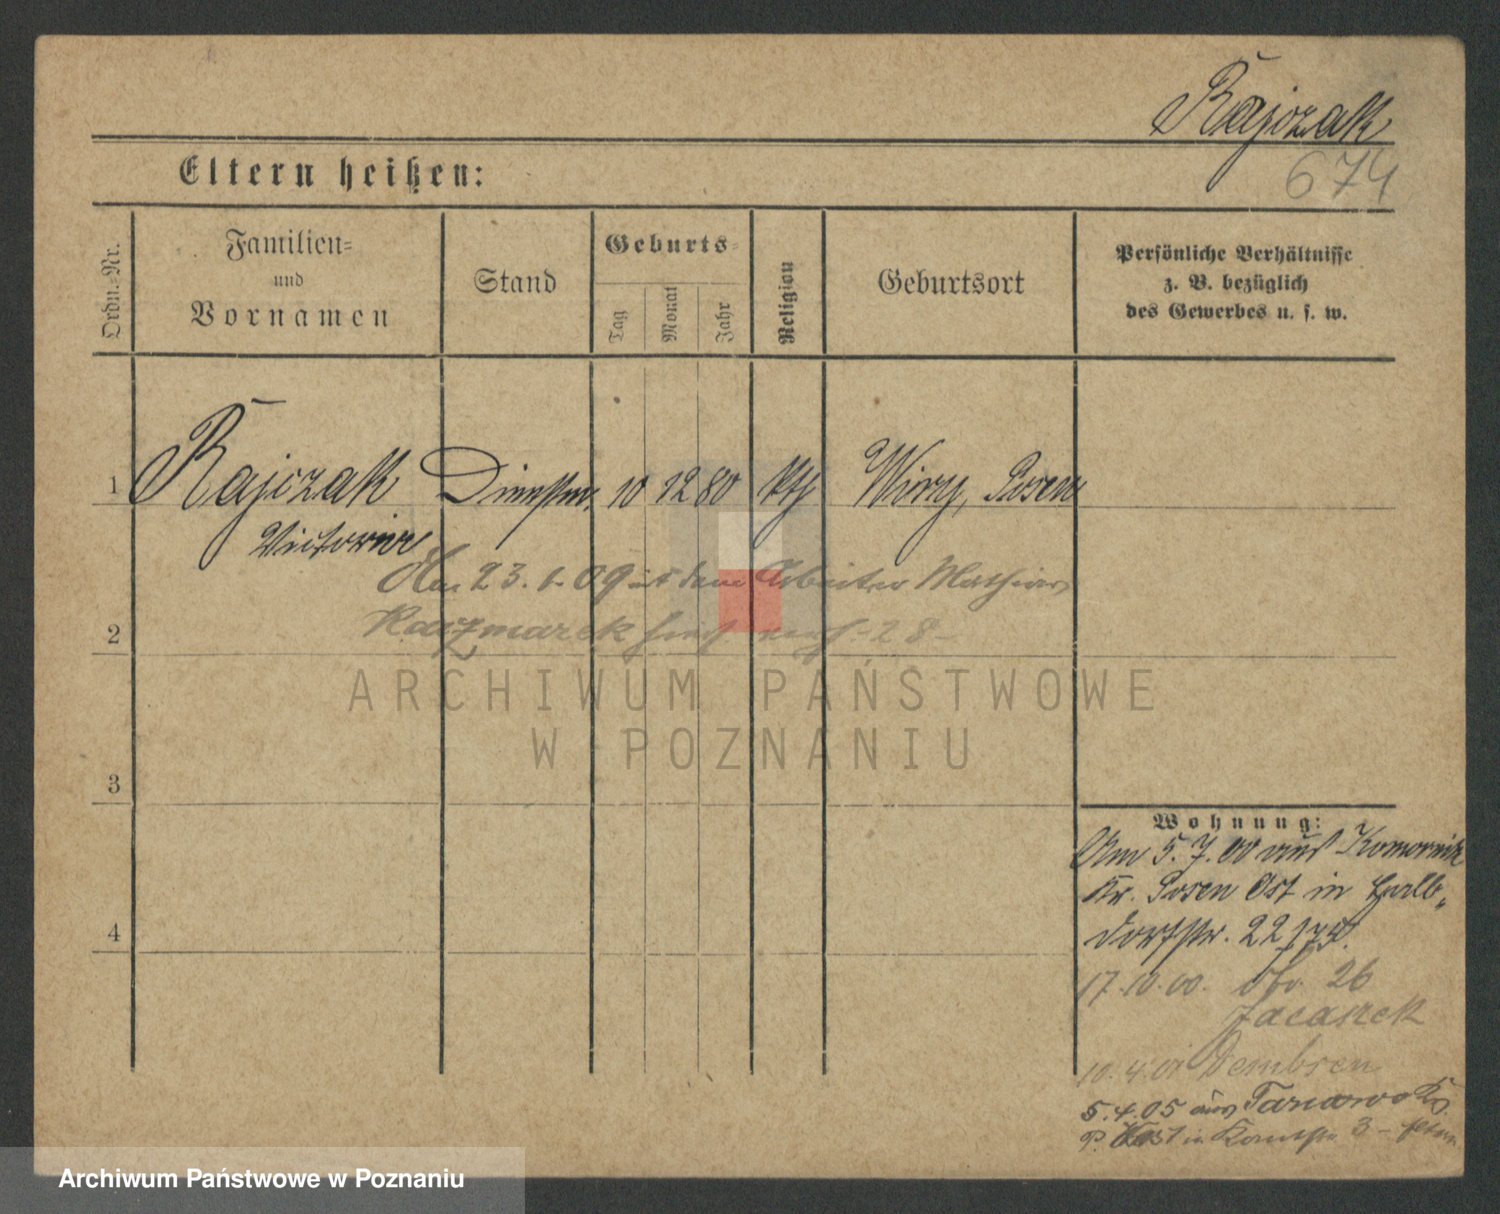 Rajczak
674
Eltern heißen:
Ordn.-Nr.
Familien-
und
Vornamen
Stand
Geburts-
Tag
Monat
Jahr
Religion
Geburtsort
Persönliche Verhältnisse
z. B. bezüglich
des Gewerbes u. s. w.
1 Rajczak Dienstm. 10 12 80 kth Wirry, Posen
Victoria
Am 23. 1. 09 mit dem Arbeiter Mathias
2 Kaczmarek hier 28
ARCHIWUM PAŃSTWOWE
W POZNANIU
3
Wohnung:
Am 5. 7. 00 aus Komornik
Kr. Posen Ost in Halb-
4
dorfstr. 22
17.10.00. 26
Jacaszek
10.4.01 Dembsen
5.4.05 aus Tarnowo Kr.
P. Ost in 3
Archiwum Państwowe w Poznaniu